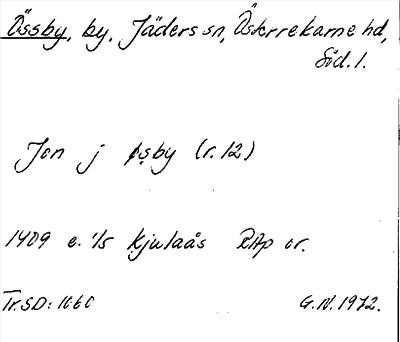 Össby, by, Jäders sn, Österrekarne hd,
Söd. l.
Jon j øsby (r. 12)
1409 e. 1/5 Kjulaås RAp or.
Tr. SD: 1060
G.N. 1972.